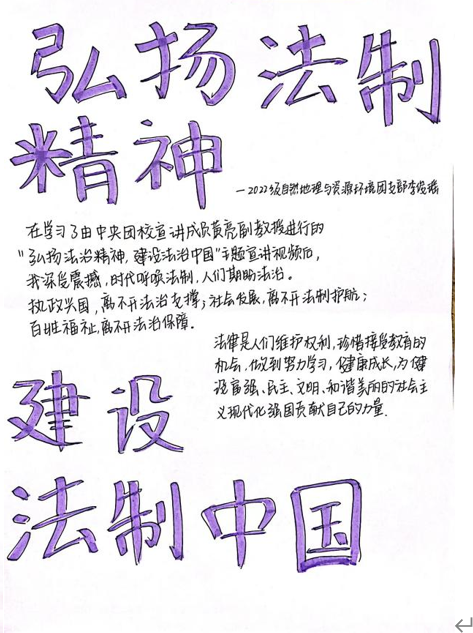 弘扬法制
精神
—2022级自然地理与资源环境团支部李俊
在学习了由中央团校宣讲成员黄亮副教授进行的
“弘扬法治精神,建设法治中国”主题宣讲视频后,
我深受震撼,时代呼唤法制,人们期盼法治。
执政兴国,离不开法治支撑;社会发展,离不开法制护航;
百姓福祉,离不开法治保障。
法律是人们维护权利,珍惜接受教育的
机会.做到努力学习,健康成长,为健
设富强、民主、文明、和谐美丽的社会主
义现代化强国贡献自己的力量.
建设
法制中国